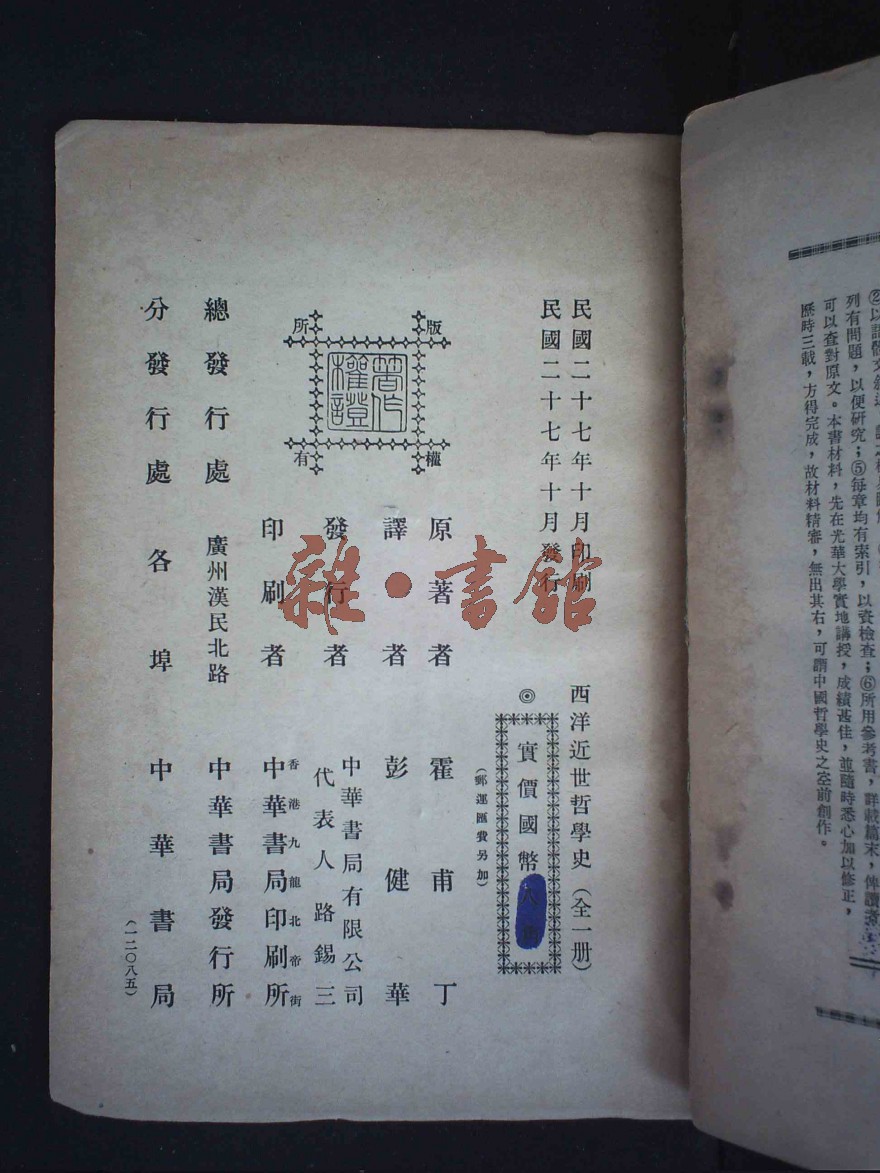 ②以語體文敍述
列有問題，以便研究；⑤每章均有索引，以資檢查；⑥所用參考書，詳載篇末，俾讀者
可以查對原文。本書材料，先在光華大學實地講授，成績甚佳，並隨時悉心加以修正，
歷時三載，方得完成，故材料精審，無出其右，可謂中國哲學史之空前創作。
民國二十七年十月印刷
民國二十七年十月發行
西洋近世哲學史（全一冊）
◎實價國幣
（郵運匯費另加）
版權所有
著作權證
原著者 霍甫丁
譯者 彭健華
發行者 中華書局有限公司
代表人路錫三
印刷者 香港九龍北帝街
中華書局印刷所
總發行處 廣州漢民北路 中華書局發行所
分發行處 各埠 中華書局
（一二〇八五）
雜·書館